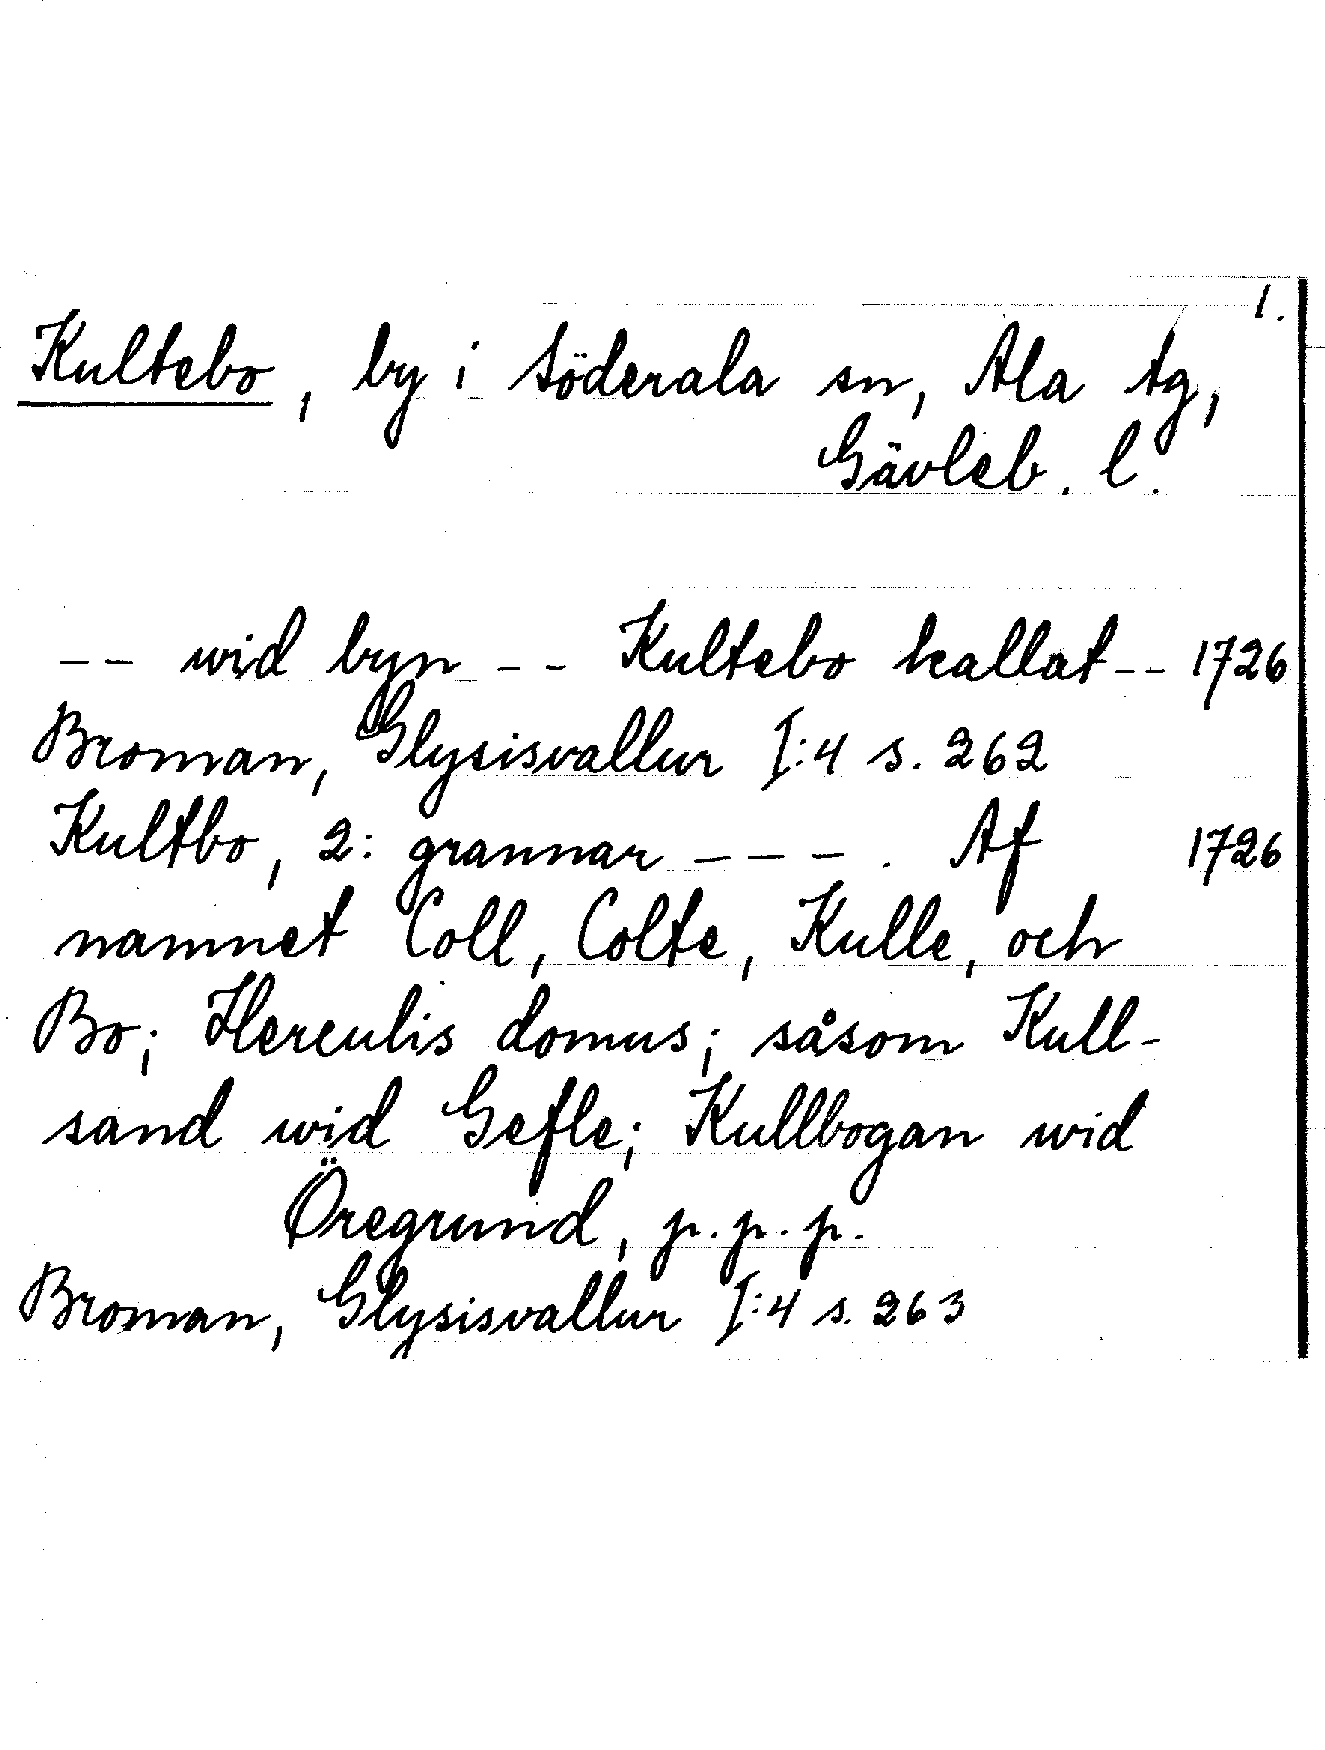 1.
Kultebo, by i Söderala sn, Ala tg,
Gävleb. l.
-- wid byn -- Kultebo kallat -- 1726
Broman, Glysisvallur I:4 s. 262
Kultbo, 2: grannar ---. Af 1726
namnet Coll, Colte, Kulle, och
Bo; Herculis domus; såsom Kull-
sand wid Gefle; Kullbogan wid
Öregrund, p.p.p.
Broman, Glysisvallur I:4 s. 263